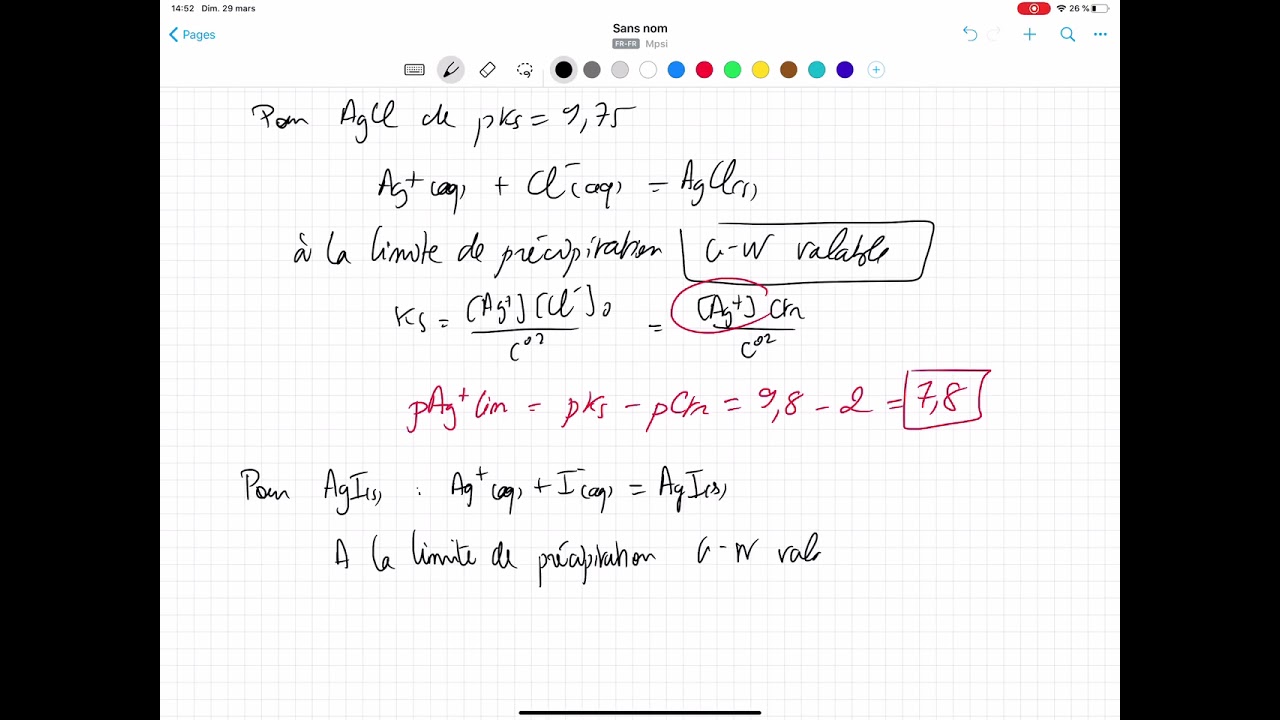 14:52 Dim. 29 mars 26 %
Pages
Sans nom
FR-FR Mpsi
Pour AgCl de pKs = 9,75
Ag⁺(aq) + Cl⁻(aq) = AgCl(s)
à la limite de précipitation G-W valable
Ks = [Ag⁺][Cl⁻]₀ / C°² = [Ag⁺] C / C°²
pAg⁺lim = pKs - pC = 9,8 - 2 = 7,8
Pour AgI(s) : Ag⁺(aq) + I⁻(aq) = AgI(s)
A la limite de précipitation G-W vala